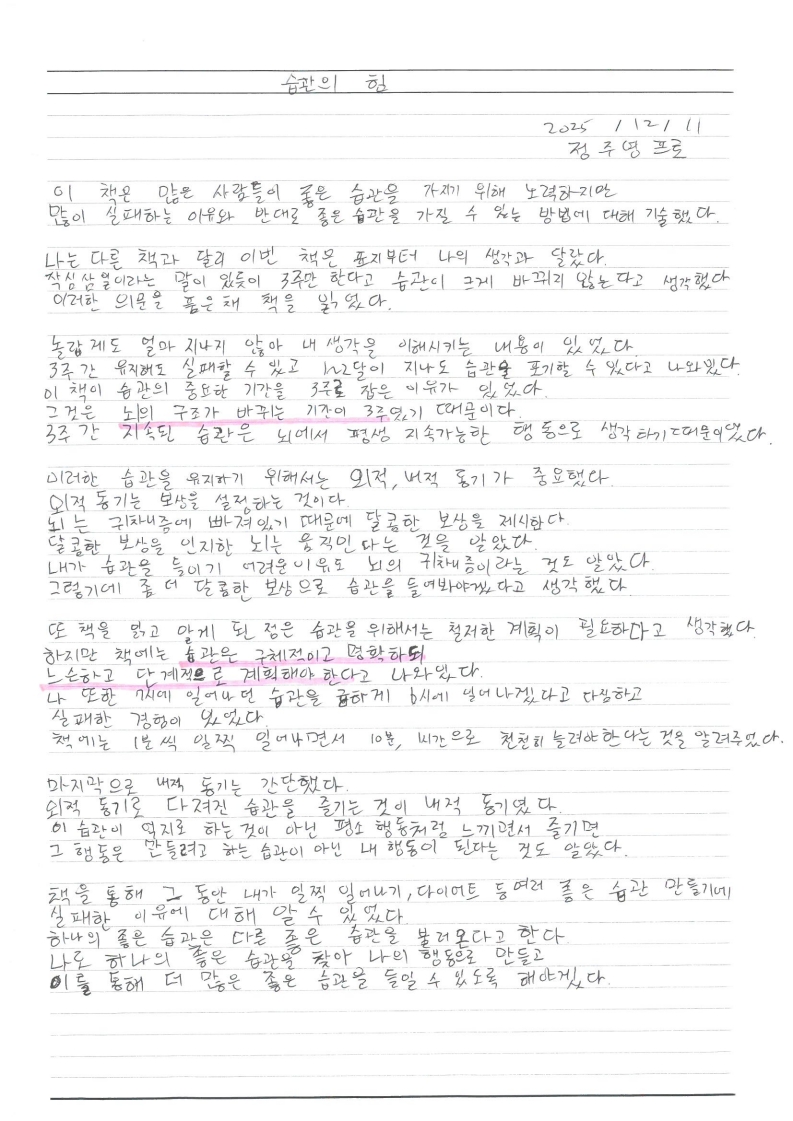 습관의 힘
2025 / 12 / 11
정주영 프로
이 책은 많은 사람들이 좋은 습관을 가지기 위해 노력하지만
많이 실패하는 이유와 반대로 좋은 습관을 가질 수 있는 방법에 대해 기술했다.
나는 다른 책과 달리 이번 책은 표지부터 나의 생각과 달랐다.
작심삼일이라는 말이 있듯이 3주만 한다고 습관이 크게 바뀌리 않는다고 생각했다
이러한 의문을 품은채 책을 읽었다.
놀랍게도 얼마 지나지 않아 내 생각을 이해시키는 내용이 있었다.
3주간 유지해도 실패할 수 있고 1~2달이 지나도 습관을 포기할 수 있다고 나와있다.
이 책이 습관의 중요한 기간을 3주로 잡은 이유가 있었다.
그것은 뇌의 구조가 바뀌는 기간이 3주였기 때문이다.
3주간 지속된 습관은 뇌에서 평생 지속가능한 행동으로 생각하기 때문이었다.
이러한 습관을 유지하기 위해서는 외적, 내적 동기가 중요했다.
외적 동기는 보상을 설정하는 것이다.
뇌는 귀차니즘에 빠져있기 때문에 달콤한 보상을 제시한다.
달콤한 보상을 인지한 뇌는 움직인다는 것을 알았다.
내가 습관을 들이기 어려운 이유도 뇌의 귀차니즘이라는 것도 알았다.
그렇기에 좀 더 달콤한 보상으로 습관을 들여봐야겠다고 생각했다
또 책을 읽고 알게 된 점은 습관을 위해서는 철저한 계획이 필요하다고 생각했다.
하지만 책에는 습관은 구체적이고 명확하되
느슨하고 단계적으로 계획해야 한다고 나와있다.
나 또한 7시에 일어나던 습관을 급하게 6시에 일어나겠다고 다짐하고
실패한 경험이 있었다.
책에는 1분씩 일찍 일어나면서 10분, 1시간으로 천천히 늘려야한다는 것을 알려주었다.
마지막으로 내적 동기는 간단했다.
외적 동기로 다져진 습관을 즐기는 것이 내적 동기였다.
이 습관이 억지로 하는것이 아닌 평소 행동처럼 느끼면서 즐기면
그 행동은 만들려고 하는 습관이 아닌 내 행동이 된다는 것도 알았다.
책을 통해 그 동안 내가 일찍 일어나기, 다이어트 등 여러 좋은 습관 만들기에
실패한 이유에 대해 알 수 있었다.
하나의 좋은 습관은 다른 좋은 습관을 불러온다고 한다.
나도 하나의 좋은 습관을 찾아 나의 행동으로 만들고
이를 통해 더 많은 좋은 습관을 들일 수 있도록 해야겠다.